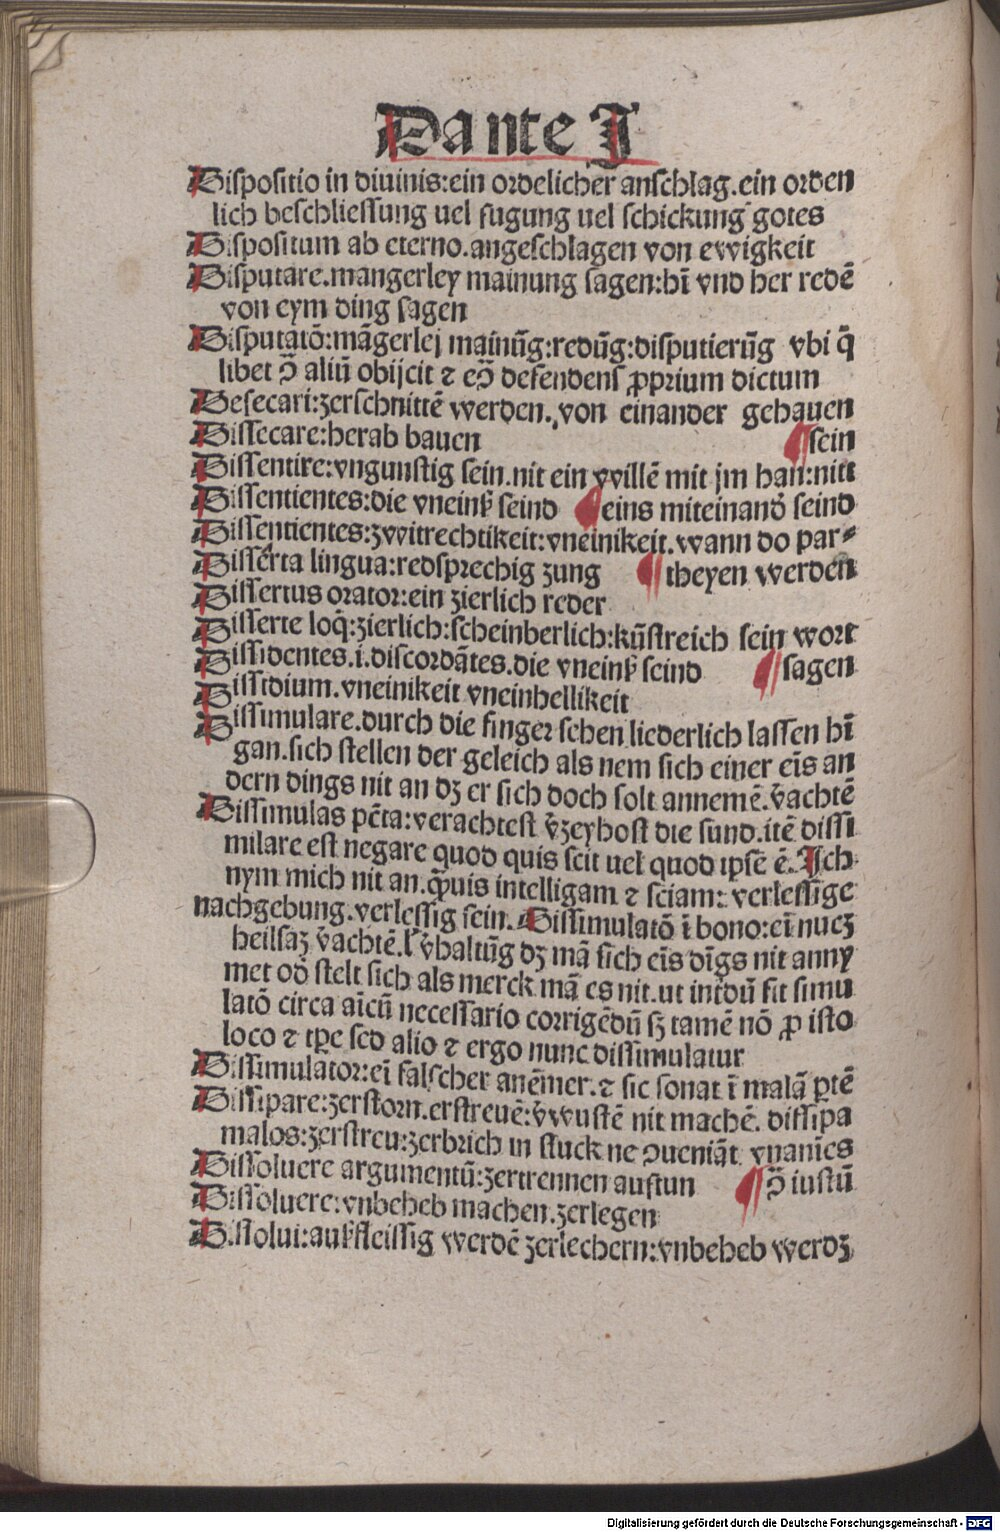 Dante I
Dispositio in diuinis:ein ordelicher anschlag.ein orden
lich beschliessung uel fugung uel schickung gotes
Dispositum ab eterno.angeschlagen von ewigkeit
Disputare.mangerley mainung sagen:hī vnd her redē
von eym ding sagen
Disputatō:māgerlej mainūg:redūg:disputierūg vbi q̄
libet ꝯ̄ aliū obijcit ⁊ eꝯ̄ defendens ꝓprium dictum
Desecari:zerschnittē werden.von einander gehauen
Dissecare:herab hauen ¶ sein
Dissentire:vngunstig sein.nit ein willē mit jm han:nitt
Dissentientes:die vneinß seind ¶ eins miteinanď seind
Dissentientes:zwitrechtikeit:vneinikeit.wann do par⸗
Disserta lingua:redsprechig zung ¶ theyen werden
Dissertus orator:ein zierlich reder
Disserte loq̄:zierlich:scheinberlich:kūstreich sein wort
Dissidentes.i.discordātes.die vneinß seind ¶ sagen
Dissidium.vneinikeit vneinhellikeit
Dissimulare.durch die finger sehen liederlich lassen hī
gan.sich stellen der geleich als nem sich einer eīs an
dern dings nit an dz er sich doch solt annemē.v̄achtē
Dissimulas pc̄ta:verachtest v̄zeyhost die sund.itē dissi
milare est negare quod quis scit uel quod ipse ē.Ich
nym mich nit an.q̄uis intelligam ⁊ sciam:verlessīge
nachgebung.verlessig sein.Dissimulatō ī bono:eī nucz
heilsaz v̄achtē.l' v̄haltūg dz mā sich eīs dīgs nit anny
met oď stelt sich als merck mā es nit.ut int̄dū fit simu
latō circa aīcū necessario corrigēdū sz tamē nō ꝓ isto
loco ⁊ tꝑe sed alio ⁊ ergo nunc dissimulatur
Dissimulator:eī falscher anēmer.⁊ sic sonat ī malā ꝑtē
Dissipare:zerstorn.erstreuē:v̄wustē nit machē.dissipa
malos:zerstreu:zerbrich in stuck ne ꝯueniāt vnanīes
Dissoluere argumentū:zertrennen auftun ¶ ꝯ̄ iustū
Dissoluere:vnbeheb machen.zerlegen
Dissolui:aufßfleissig werdē zerlechern:vnbeheb werdz
Digitalisierung gefördert durch die Deutsche Forschungsgemeinschaft - DFG